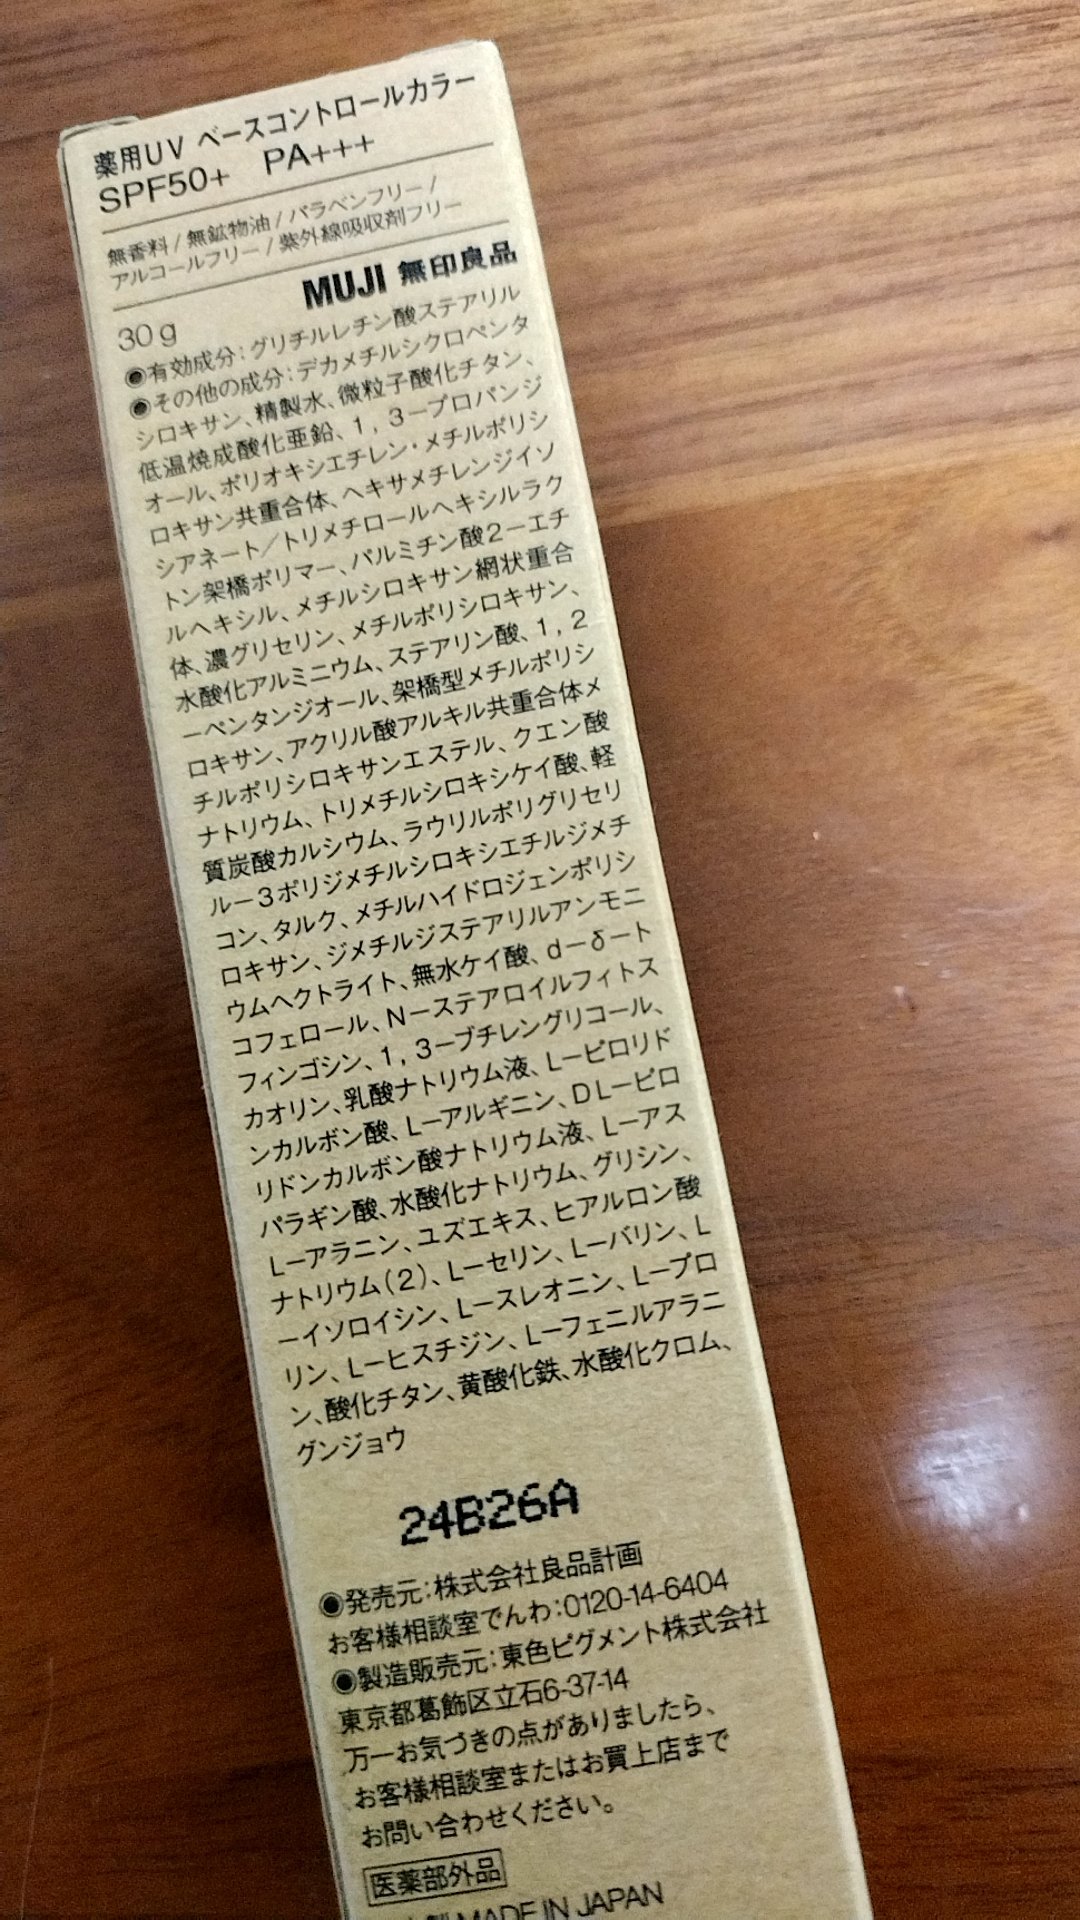 薬用UV ベースコントロールカラー
SPF50+ PA+++
無香料/無鉱物油/パラベンフリー/
アルコールフリー/紫外線吸収剤フリー
MUJI 無印良品
30g
◉有効成分:グリチルレチン酸ステアリル
◉その他の成分:デカメチルシクロペンタ
シロキサン、精製水、微粒子酸化チタン、
低温焼成酸化亜鉛、1,3ープロパンジ
オール、ポリオキシエチレン・メチルポリシ
ロキサン共重合体、ヘキサメチレンジイソ
シアネート/トリメチロールヘキシルラク
トン架橋ポリマー、パルミチン酸2ーエチ
ルヘキシル、メチルシロキサン網状重合
体、濃グリセリン、メチルポリシロキサン、
水酸化アルミニウム、ステアリン酸、1,2
ーペンタンジオール、架橋型メチルポリシ
ロキサン、アクリル酸アルキル共重合体メ
チルポリシロキサンエステル、クエン酸
ナトリウム、トリメチルシロキシケイ酸、軽
質炭酸カルシウム、ラウリルポリグリセリ
ルー3ポリジメチルシロキシエチルジメチ
コン、タルク、メチルハイドロジェンポリシ
ロキサン、ジメチルジステアリルアンモニ
ウムヘクトライト、無水ケイ酸、dーδート
コフェロール、Nーステアロイルフィトス
フィンゴシン、1,3ーブチレングリコール、
カオリン、乳酸ナトリウム液、Lーピロリド
ンカルボン酸、Lーアルギニン、DLーピロ
リドンカルボン酸ナトリウム液、Lーアス
パラギン酸、水酸化ナトリウム、グリシン、
Lーアラニン、ユズエキス、ヒアルロン酸
ナトリウム(2)、Lーセリン、Lーバリン、L
ーイソロイシン、Lースレオニン、Lープロ
リン、Lーヒスチジン、Lーフェニルアラニ
ン、酸化チタン、黄酸化鉄、水酸化クロム、
グンジョウ
24B26A
◉発売元:株式会社良品計画
お客様相談室でんわ:0120-14-6404
◉製造販売元:東色ピグメント株式会社
東京都葛飾区立石6-37-14
万一お気づきの点がありましたら、
お客様相談室またはお買上店まで
お問い合わせください。
医薬部外品
MADE IN JAPAN